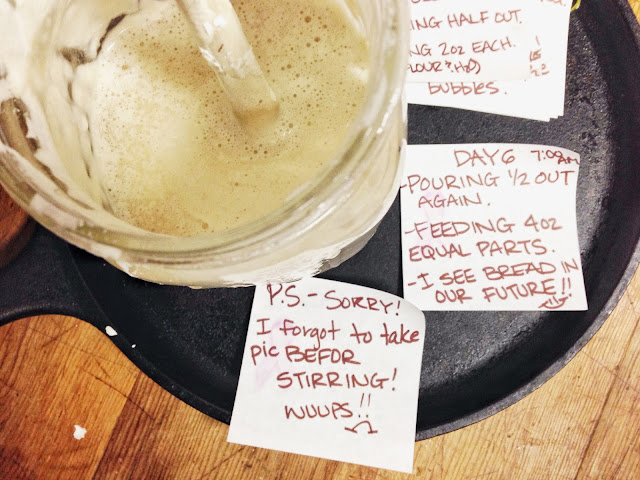 ING HALF OUT.
NG 2OZ EACH.
FLOUR & H2O)
bubbles.
DAY 6 7:09AM
-POURING 1/2 OUT
AGAIN.
-FEEDING 4OZ
EQUAL PARTS.
-I SEE BREAD IN
OUR FUTURE!!
P.S.- SORRY!
I forgot to take
pic BEFOR
STIRRING!
WUUPS!!